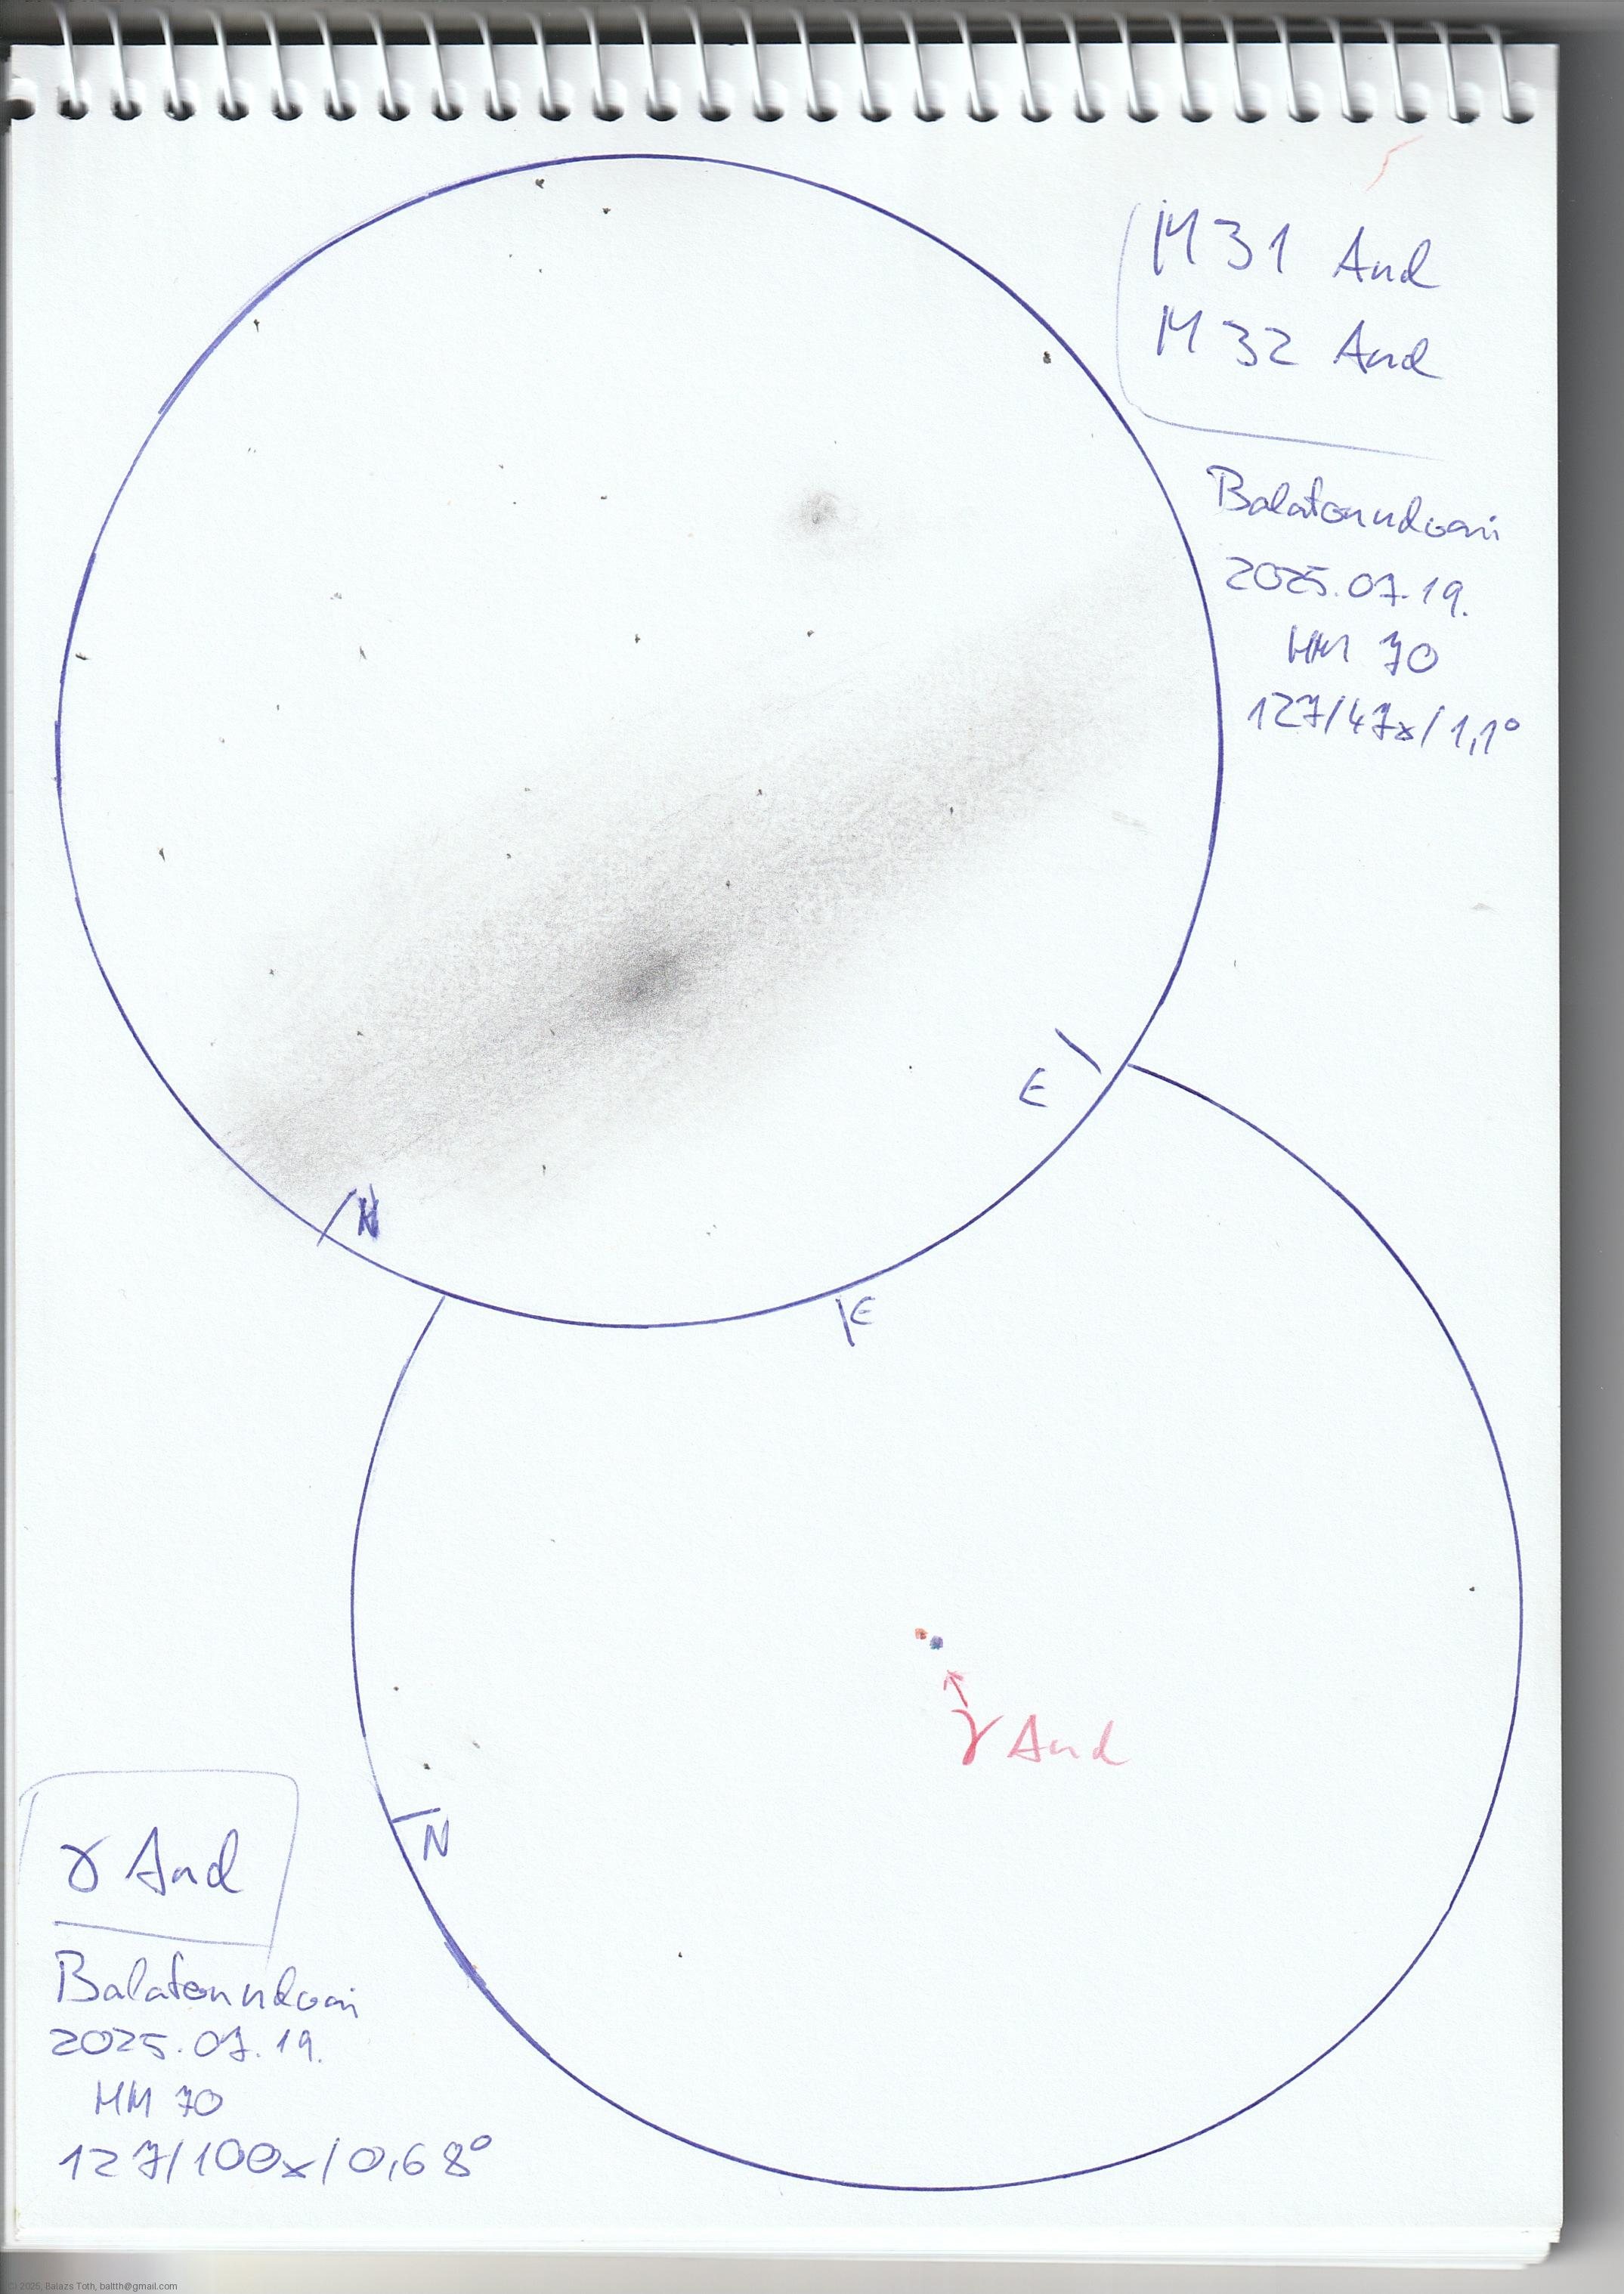 M 31 And
M 32 And
Balatonudvari
2025.07.19.
HM 70
127/47x/1,1°
E
N
E
γ And
N
γ And
Balatonudvari
2025.07.19.
HM 70
127/100x/0,68°
© 2025, Balazs Toth, baltth@gmail.com